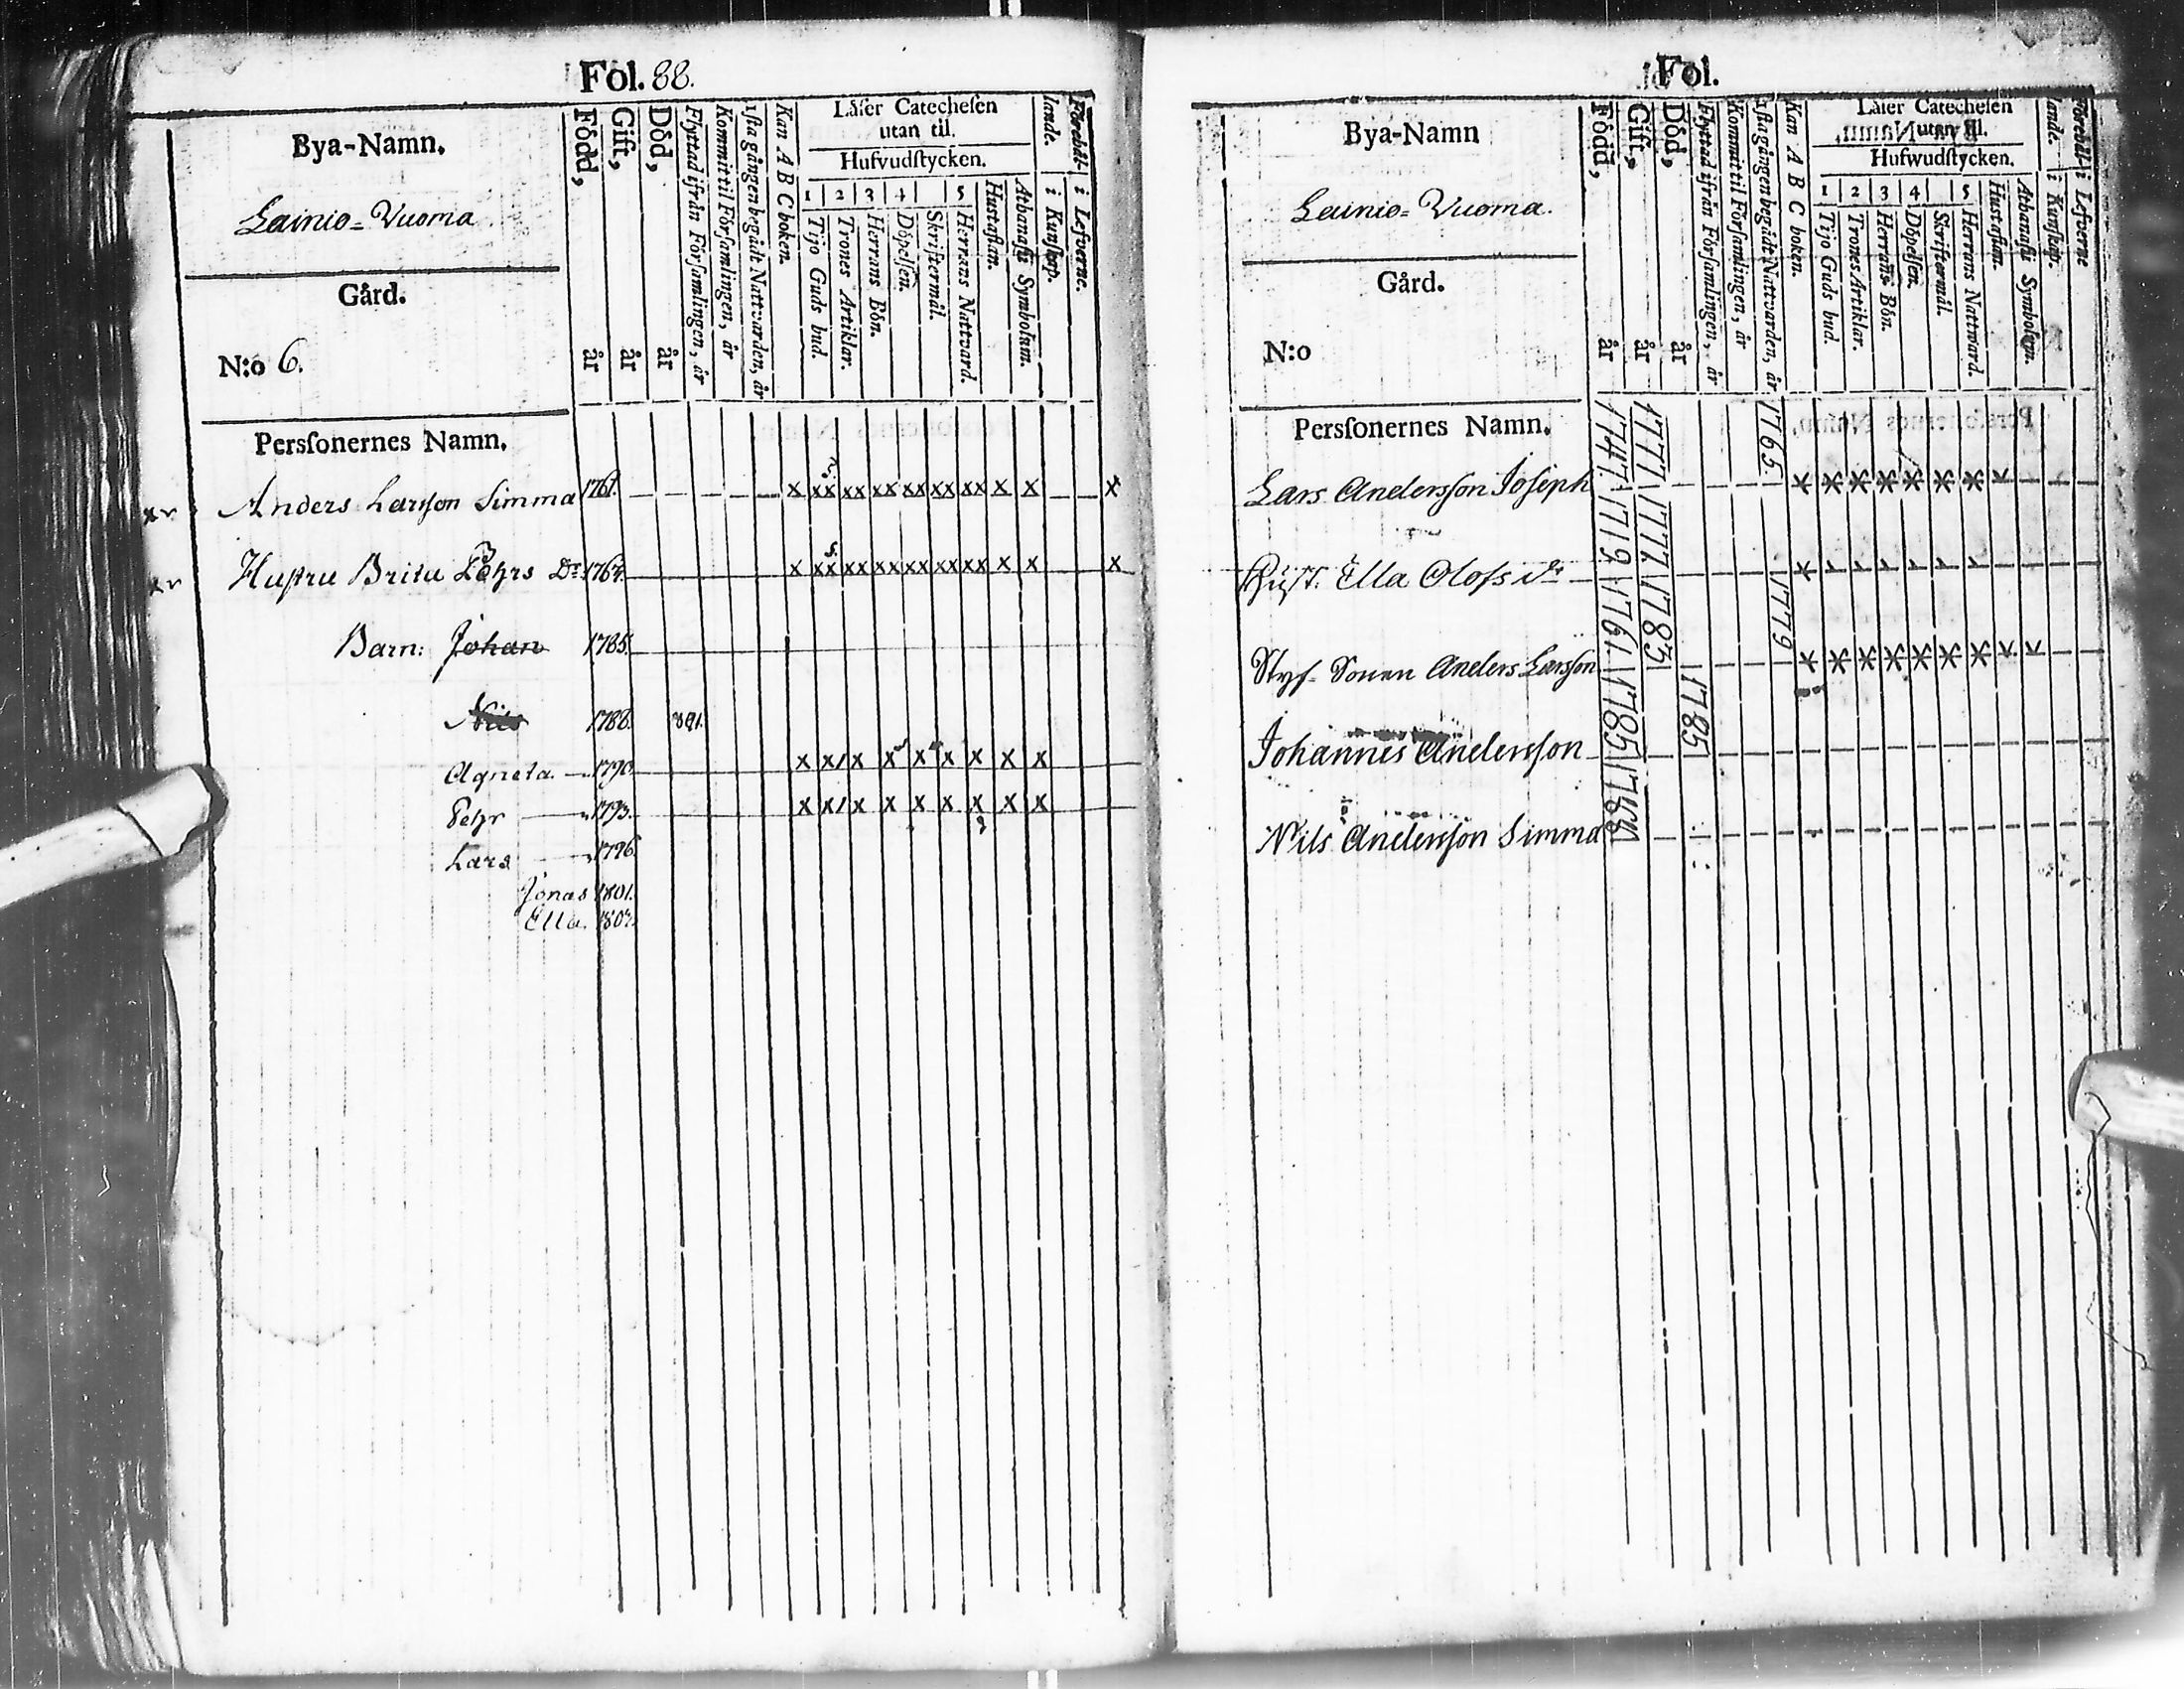 Fol. 88.
Bya-Namn.
Lainio=Vuoma
Gård.
N:o 6.
Persſonernes Namn.
Född, år
Gift, år
Död, år
Flyttad ifrån Förſamlingen, år
Kommit til Förſamlingen, år
1ſta gången begådt Nattvarden, år
Kan A B C boken.
Läſer Catecheſen
utan til.
Hufvudſtycken.
1 2 3 4 5
Tijo Guds bud.
Trones Artiklar.
Herrans Bön.
Döpelſen.
Skriftermål.
Herrans Nattvard.
Hustaflan.
Athanaſii Symbolum.
Förehållande.
i Kunſkap.
i Lefverne.
Anders Larsſon Simma 1761. x xx xx xx xx xx xx x x x
Hustru Brita Pehrs Dr 176 x xx xx xx xx xx xx x x x
Barn: Johan 1785.
Nils 1788. 1791.
Agneta 1790 x x x x x x x x x
Pehr 1793. x x x x x x x x x
Lars 1796.
Jonas 1801.
Ella. 180
Fol.
Bya-Namn
Lainio=Vuoma.
Gård.
N:o
Persſonernes Namn.
Född, år
Gift, år
Död, år
Flyttad ifrån Förſamlingen, år
Kommit til Förſamlingen, år
1ſta gången begådt Nattvarden, år
Kan A B C boken.
Läſer Catecheſen
utan til.
Hufwudſtycken.
1 2 3 4 5
Tijo Guds bud.
Trones Artiklar.
Herrans Bön.
Döpelſen.
Skriftermål.
Herrans Nattward.
Hustaflan.
Athanaſii Symbolum.
Förehållande.
i Kunſkap.
i Lefverne
Lars Andersſon Joseph 1747. 1777 1765.
Huſt. Ella Olofs dr 1719 1777
Styf-Sonen Anders Larsſon 1761. 1783 1779
Johannes Andersſon 1785 1785
Nils Andersſon Simma 1788